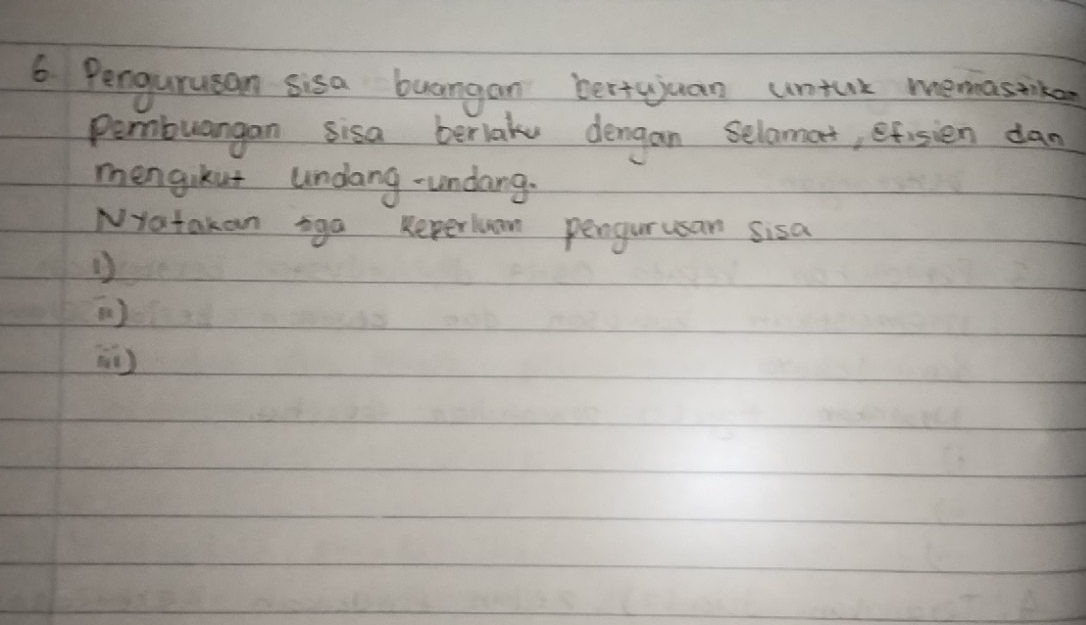 6. Pengurusan sisa buangan bertujuan untuk memastikan
pembuangan sisa berlaku dengan selamat, efisien dan
mengikut undang-undang.
Nyatakan tiga keperluan pengurusan sisa
i)
ii)
iii)